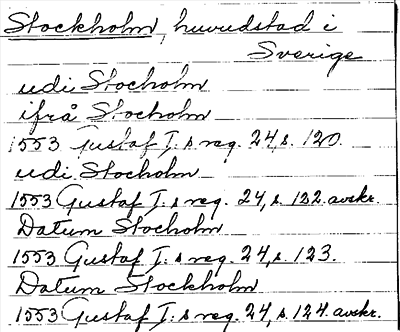 Stockholm, huvudstad i
Sverige
udi Stocholm
ifrå Stocholm
1553 Gustaf I:s reg. 24, s. 120.
udi Stocholm
1553 Gustaf I:s reg. 24, s. 122 avskr.
Datum Stocholm
1553 Gustaf I:s reg. 24, s. 123.
Datum Stockholm
1553 Gustaf I:s reg. 24, s. 124 avskr.